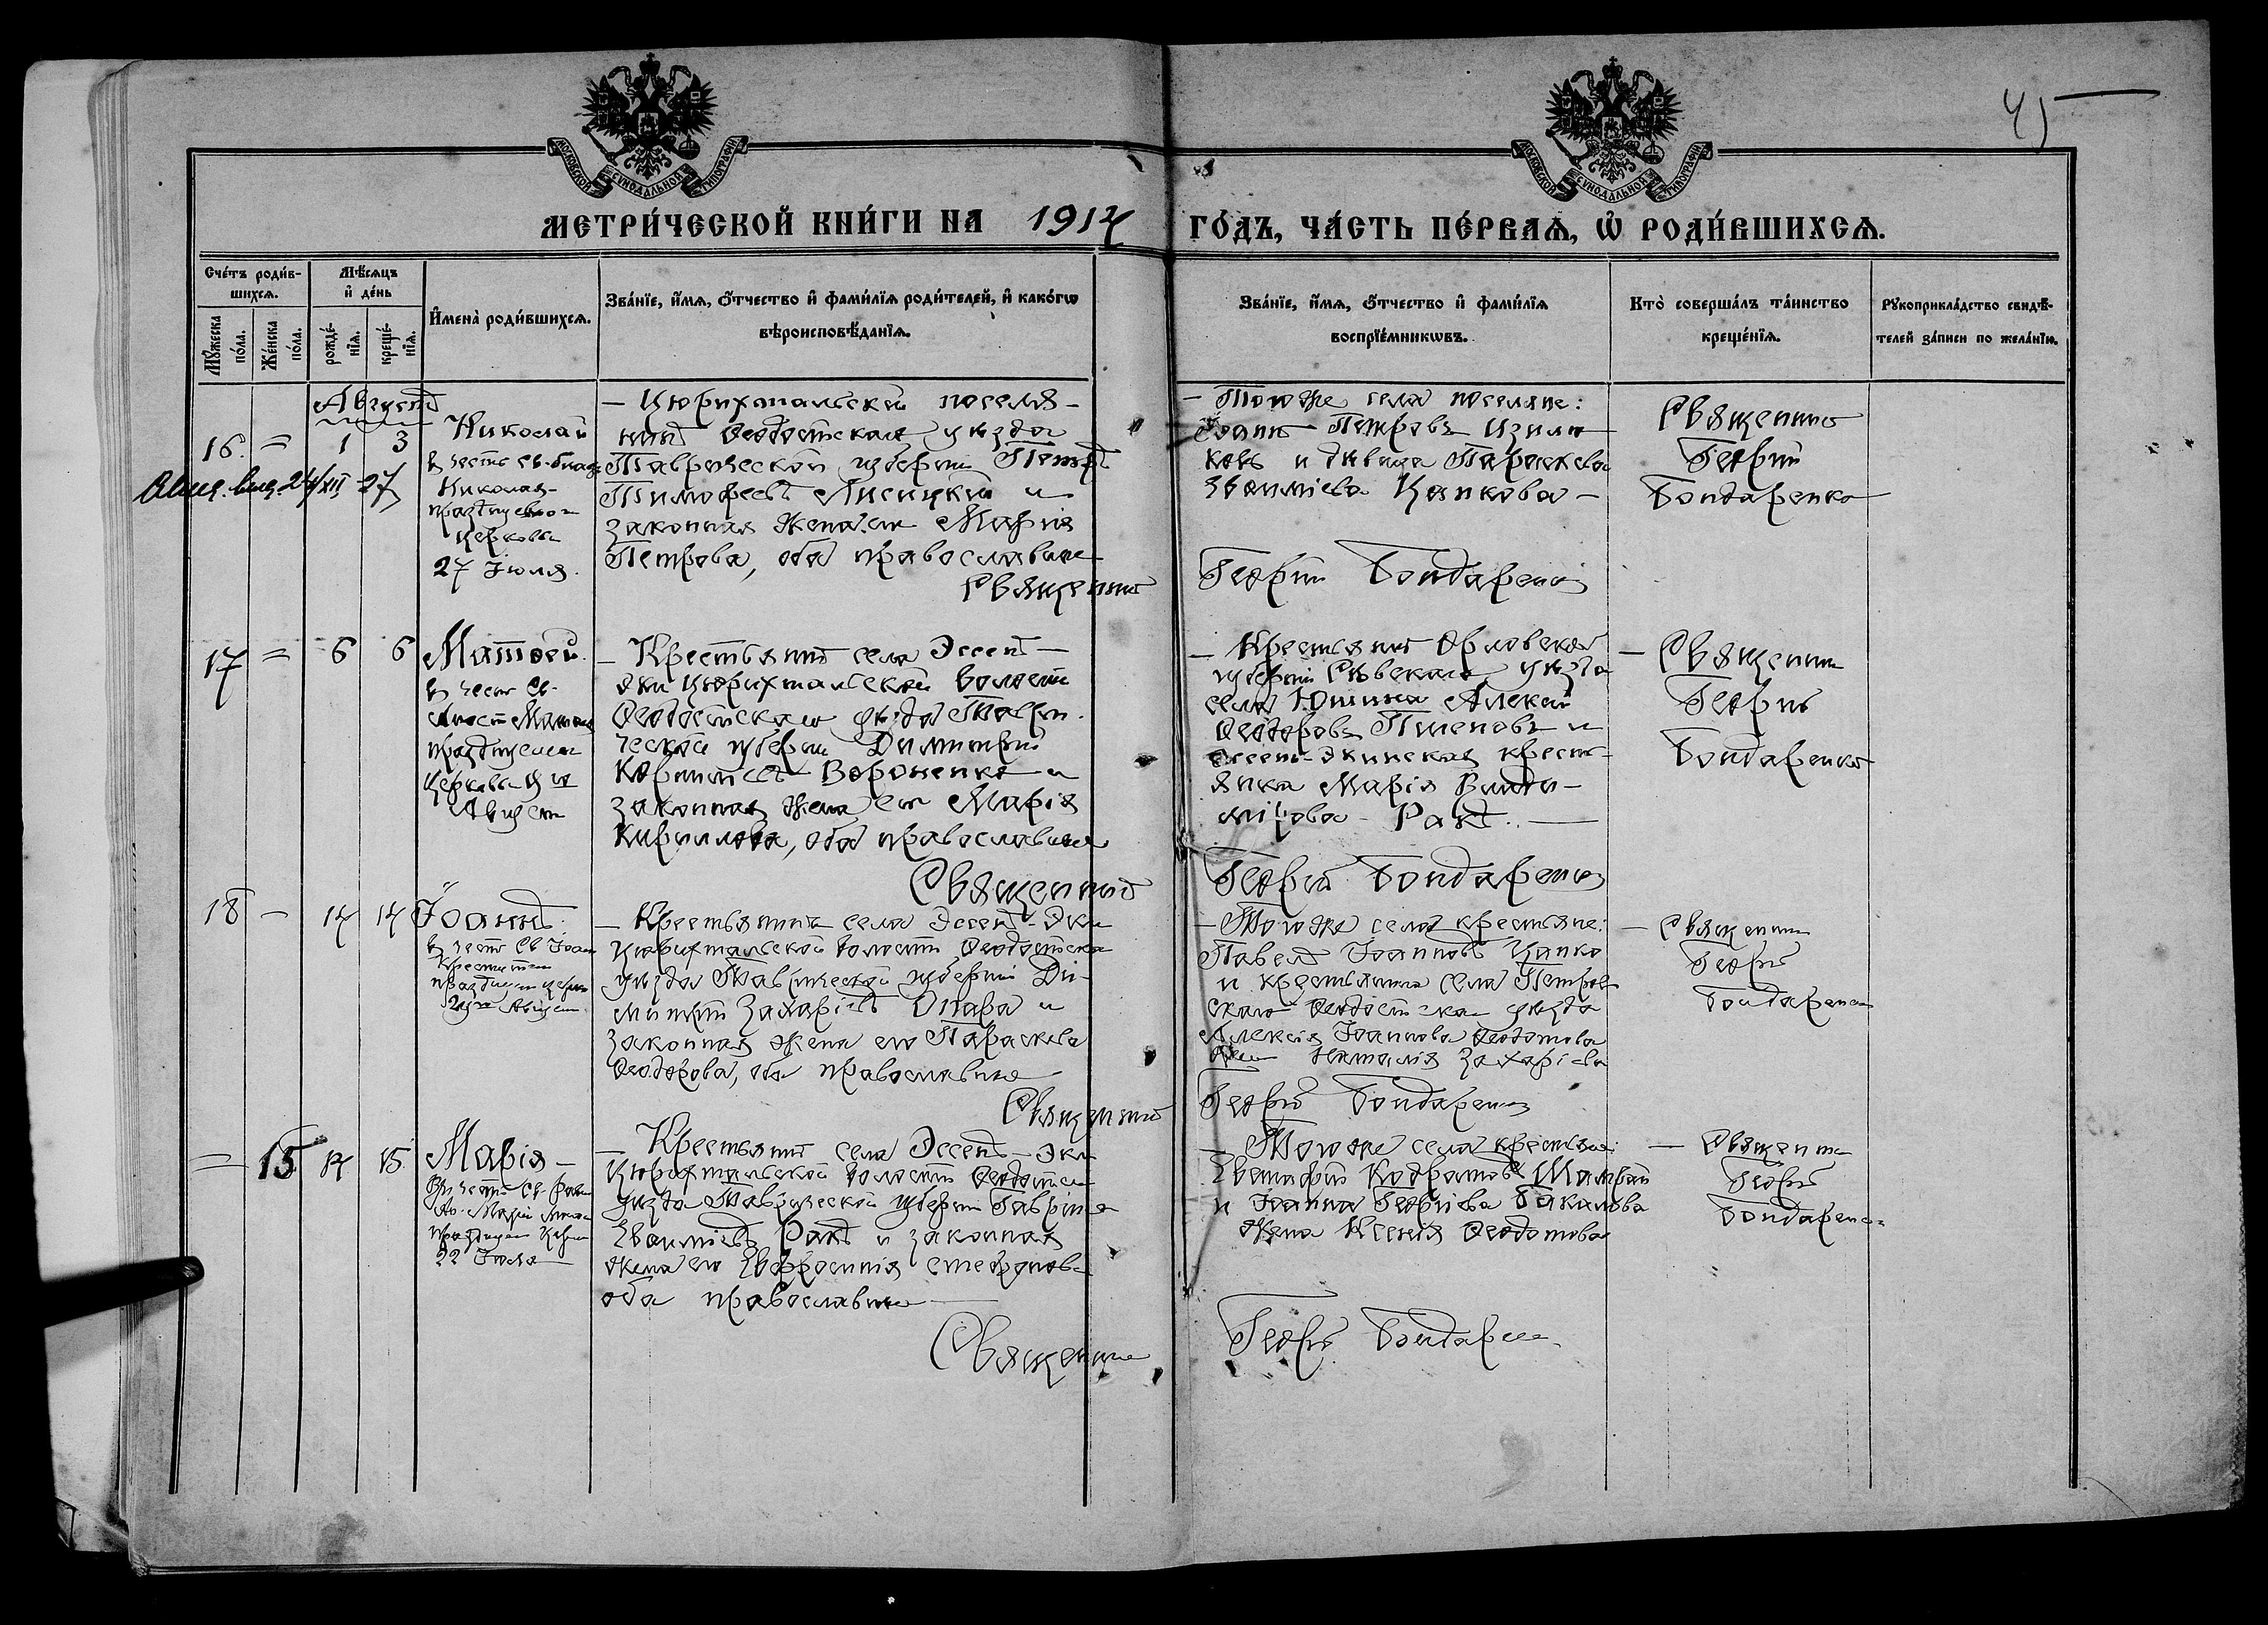 45
МОСКОВСКОЙ СУНОДАЛЬНОЙ ТИПОГРАФІИ
МОСКОВСКОЙ СУНОДАЛЬНОЙ ТИПОГРАФІИ
МЕТРИ́ЧЕСКОЙ КНИ́ГИ НА 1914
ГО́ДЪ, ЧА́СТЬ ПЕ́РВАѦ, Ѡ҆ РОДИ́ВШИХСѦ.
Сче́тъ роди́в-
шихсѧ.
Мꙋ́жеска по́ла.
Же́нска по́ла.
Мѣ́сѧцъ
и҆ де́нь
рожде́-нїѧ.
креще́-нїѧ.
И҆мена̀ роди́вшихсѧ.
Зва́нїе, и҆́мѧ, ѻ҆́тчество и҆ фами́лїѧ роди́телей, и҆ како́гѡ
вѣроисповѣ́данїѧ.
Зва́нїе, и҆́мѧ, ѻ҆́тчество и҆ фами́лїѧ
воспрїе́мникѡвъ.
Кто̀ соверша́лъ та́инство
креще́нїѧ.
Рꙋкоприкла́дство свидѣ́-
телей за́писи по жела́нїю.
Августъ
16. = 1 3
24/XII 27
Николай
въ честь Св.
Николая
Церковью
27 Іюля.
— Цюрихтальскій поселя-
нинъ Ѳеодосійскаго уѣзда
Таврической губерніи Петръ
Тимофеевъ Лисицкій и
законная жена его Марія
Петрова, оба православные
Священникъ
— Тогоже села поселяне:
Іоаннъ Петровъ
и дѣвица Параскева
Евѳиміева Цапкова —
Георгій Бондаренко
Священникъ
Георгій
Бондаренко
17 = 6 6
Матѳей.
въ честь Св.
Апост. Матѳея
празднуемаго
Церковью 9 го
Августа
— Крестьянинъ села Эссенъ-
Эки Цюрихтальской волости
Ѳеодосійскаго уѣзда Таври-
ческой губерніи Димитрій
Вороненко и
законная жена его Марія
Кириллова, оба православные
Священникъ
— Крестьянинъ Орловской
губерніи Сѣвскаго уѣзда
села Юшина Алексій
Ѳеодоровъ и
Эссенъ-Экинская кресть-
янка Марія Влади-
мірова Ракъ. —
Георгій Бондаренко
— Священникъ
Георгій
Бондаренко
18 — 14 14
Іоаннъ.
въ честь Св. Іоанна
Крестителя
29 го Августа
— Крестьянинъ села Эссенъ-Эки
Цюрихтальской волости Ѳеодосійскаго
уѣзда Таврической губерніи Ди-
митрій Захаріевъ Опара и
законная жена его Параскева
Ѳеодорова, оба православные
Священникъ
— Тогоже села крестьяне:
Павелъ Іоанновъ Цапко
и крестьянина села Петров-
скаго Ѳеодосійскаго уѣзда
Алексія Іоаннова Ѳедотова
жена Наталія Захаріева
Георгій Бондаренко
— Священникъ
Георгій
Бондаренко
= 15 14 15
Марія —
въ честь Св. равно-
ап. Маріи
22 Іюля
— Крестьянинъ села Эссенъ-Эки
Цюрихтальской волости Ѳеодосійскаго
уѣзда Таврической губерніи Гавріилъ
Евѳиміевъ Ракъ и законная
жена его Евфросинія
оба православные —
Священникъ
— Тогоже села крестьяне:
Евстафій Кодратовъ
и Іоанна Георгіева Бакалова
жена Ксенія Ѳеодотова
Георгій Бондаренко
— Священникъ
Георгій
Бондаренко